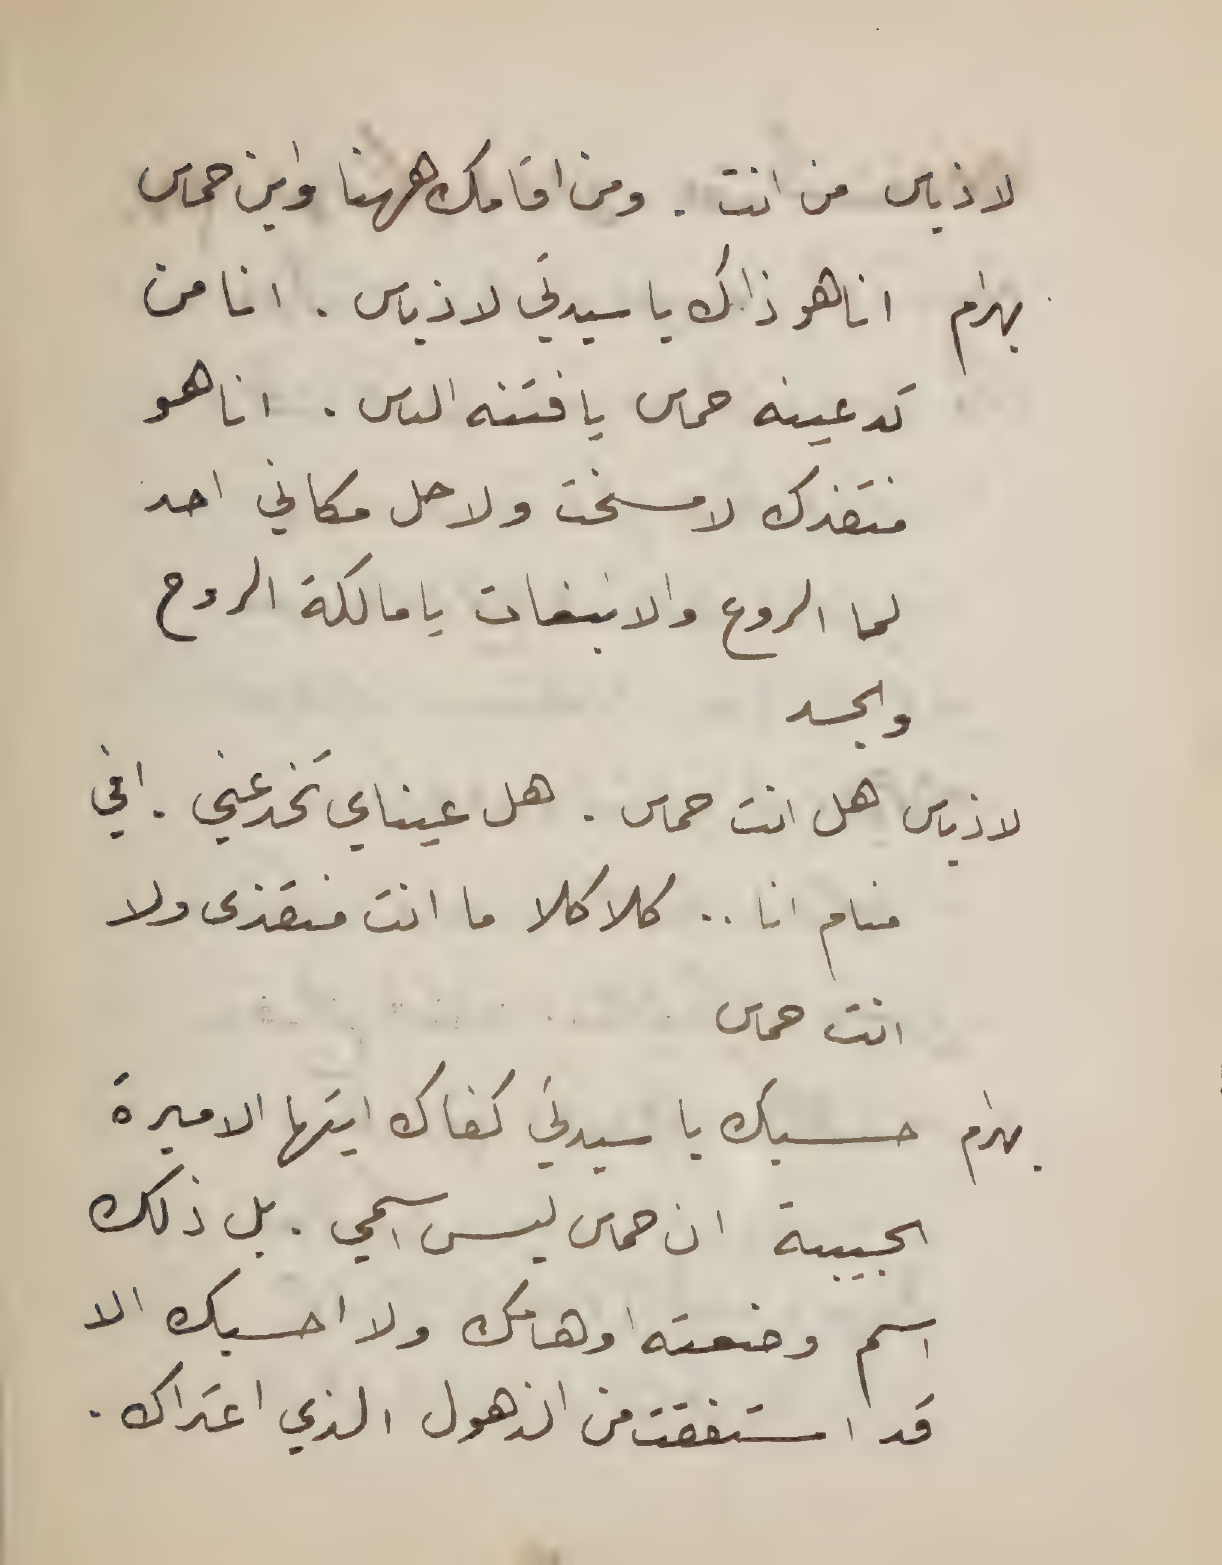 لاذياس من انت . ومن اقامك ههنا واين حماس
بهرام اناهو ذاك يا سيدتي لاذياس . انا من
تدعينه حماس يا فتنه الناس . اناهو
منقذك لا مسخت ولا حل مكاني احد
لما الروع والانبغات يا مالكة الروح
والجسد
لاذياس هل انت حماس . هل عيناي تخدعني . افي
منام انا .. كلا كلا ما انت منقذى ولا
انت حماس
بهرام حسبك يا سيدتي كفاك ايتها الاميرة
الحبيبة ان حماس ليس اسمي . بل ذلك
اسم وضعته اوهامك ولا احسبك الا
قد استفقت من الذهول الذي اعتراك .